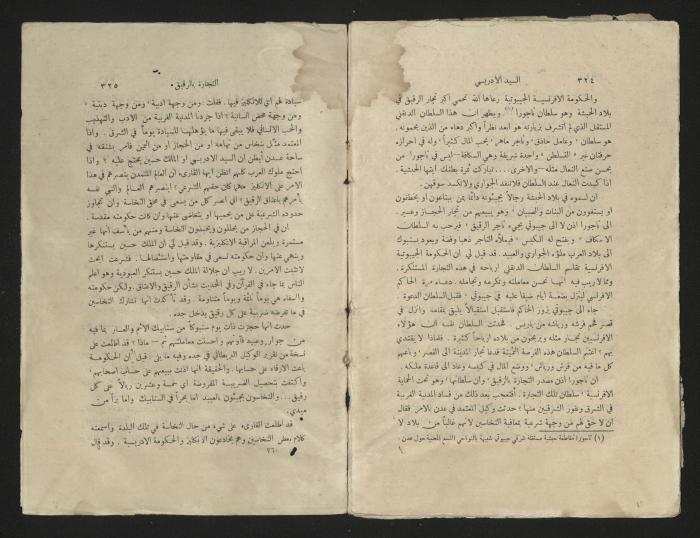 ٣٢٤
السيد الادريسي
والحكومة الافرنسية الجيبوتية رعاها الله تحمي اكبر تجار الرقيق في
بلاد الحبشة وهو سلطان تاجورا (١) ويظهر ان هذا السلطان الدنقلي
المستقل الذي لم اتشرف بزيارته هو ابعد نظراً واكبر دهاء من الذين يحمونه .
هو سلطان ، وعامل حاذق ، وتاجر ماهر ، يحب المال كثيراً ، وله في احرازه
حرفتان غير « التسلطن » واحدة شريفة وهي السكافة — ليس في تاجورا من
يحسن صنع النعال مثله — والاخرى ... تباركت ثروة بطنك ايتها الحبشية .
اذا كسدت النعال عند السلطان فلا تنفد الجواري ولا تكسد سوقهن .
ان لسموه في بلاد الحبشة رجالاً يجيئونه دائماً بمن يبتاعون او يخطفون
او يستغوون من البنات والصبيان ، وهو يبيعهم من تجار الحجاز وعسير .
الى تاجورا اذن لا الى جيبوتي يجيء تاجر الرقيق ، فيرحب به السلطان
الاسكاف ، ويفتح له الكنس ، فيملأه التاجر ذهباً وفضة ويعود بسنبوك
الى بلاد العرب ملؤه الجواري والعبيد . قد قيل لي ان الحكومة الجيبوتية
الافرنسية تقاسم السلطان الدنقلي ارباحه في هذه التجارة المستنكرة .
ومما لا ريب فيه انها تحسن معاملته وتكرمه وتجامله . دعاه مرة الحاكم
الافرنسي لينزل بضعة ايام ضيفاً عليه في جيبوتي ، فقبل السلطان الدعوة .
جاء الى جيبوتي يزور الحاكم فاستقبل استقبالاً يليق بمقامه وانزل في
قصر فخم فرشه ورياشه من باريس . فحدثت السلطان نفسه ان هؤلاء
الافرنسيين تجار مثله ويربحون من بلاده ارباحاً كثيرة . فلماذا لا يقتدي
بهم ؟ اغتنم السلطان هذه الفرصة الثمينة فدعا تجار المدينة الى القصر ، وباعهم
كل ما فيه من فرش ورياش ، ووضع المال في كيسه وعاد الى قاعدة ملكه .
ان تاجورا اذن مصدر التجارة بالرقيق ، وان سلطانها ، وهو تحت الحماية
الافرنسية ، سلطان تلك التجارة . أفتعجب بعد ذلك من فساد المدنية الغربية
في الشرق ونفور الشرقيين منها ؟ حدثت وكيل المعتمد في عدن بالامر فقال
ان لا حق لهم من وجهة شرعية بمعاقبة النخاسين لانهم غالباً من بلاد لا
(١) تاجورا مقاطعة حبشية مستقلة شرقي جيبوتي شبيهة بالنواحي التسع المحمية حول عدن .
التجارة بالرقيق
٣٢٥
سيادة لهم اي للانكليز فيها . فقلت : ومن وجهة ادبية ، ومن وجهة دينية ،
ومن وجهة محض انسانية ؟ اذا جردنا المدنية الغربية من الادب والتهذيب
والحب الانساني فلا يبقى فيها ما يؤهلها للسيادة يوماً في الشرق . واذا
المعتمد مثّل بنخاس من تهامه او من الحجاز او من اليمن فامر بشنقه في
ساحة عدن أيظن ان السيد الادريسي او الملك حسين يحتج عليه ؟ واذا
احتج ملوك العرب كلهم اتظن ايها القارىء ان العالم المتمدن ينصرهم في هذا
الامر على الانكليز مهما كان حقهم الشرعي ؟ اينصرهم العالم والنبي نفسه
يأمرهم باعتاق الرقيق ؟ اني انصر كل من يسعى في محق النخاسة وان تجاوز
حدوده الشرعية على من يحميها او يتغاضى عنها وان كانت حكومته مقدسة .
ان في الحجاز من يحللون ويحبذون النخاسة ومنهم من يأسف انها غير
مستمرة ويلعن المراقبة الانكليزية . وقد قيل لي ان الملك حسين يستنكرها
وينهي عنها وان حكومته تسعى في مقاومتها واستئصالها . فشرعت ابحث
لاثبت الامرين . لا ريب ان جلالة الملك حسين يستنكر العبودية وهو اعلم
الناس بما جاء في القرآن وفي الحديث بشأن الرقيق والاعتاق . ولكن حكومته
والسفاء هي يوماً يقظة ويوماً متناومة . وقد تأكدت انها تشارك النخاسين
في ما تفرضه ضريبة على كل رقيق يدخل جده .
حدث انها حجزت ذات يوم سنبوكاً من سنابيك الاثم والعار بما فيه
من جوار وعبيد فآوتهم واحسنت معاملتهم ثم — ماذا ؟ قد اطلعت على
نسخة من تقرير الوكيل البريطاني في جده وفيه ما يلي : قيل ان الحكومة
باعت الارقاء على حسابها . والحقيقة انها اذنت ببيعهم على حساب اصحابهم ،
واكتفت بتحصيل الضريبة المفروضة اي خمسة وعشرين ريالاً على كل
رقيق ... والنخاسون يجيئون بالعبيد اما بحراً في السنابيك واما براً من
ميدي .
قد اطلعت القارىء على شيء من حال النخاسة في تلك البلاد واسمعته
كلام بعض النخاسين وهم يخادعون الانكليز والحكومة الادريسية . وقد قال